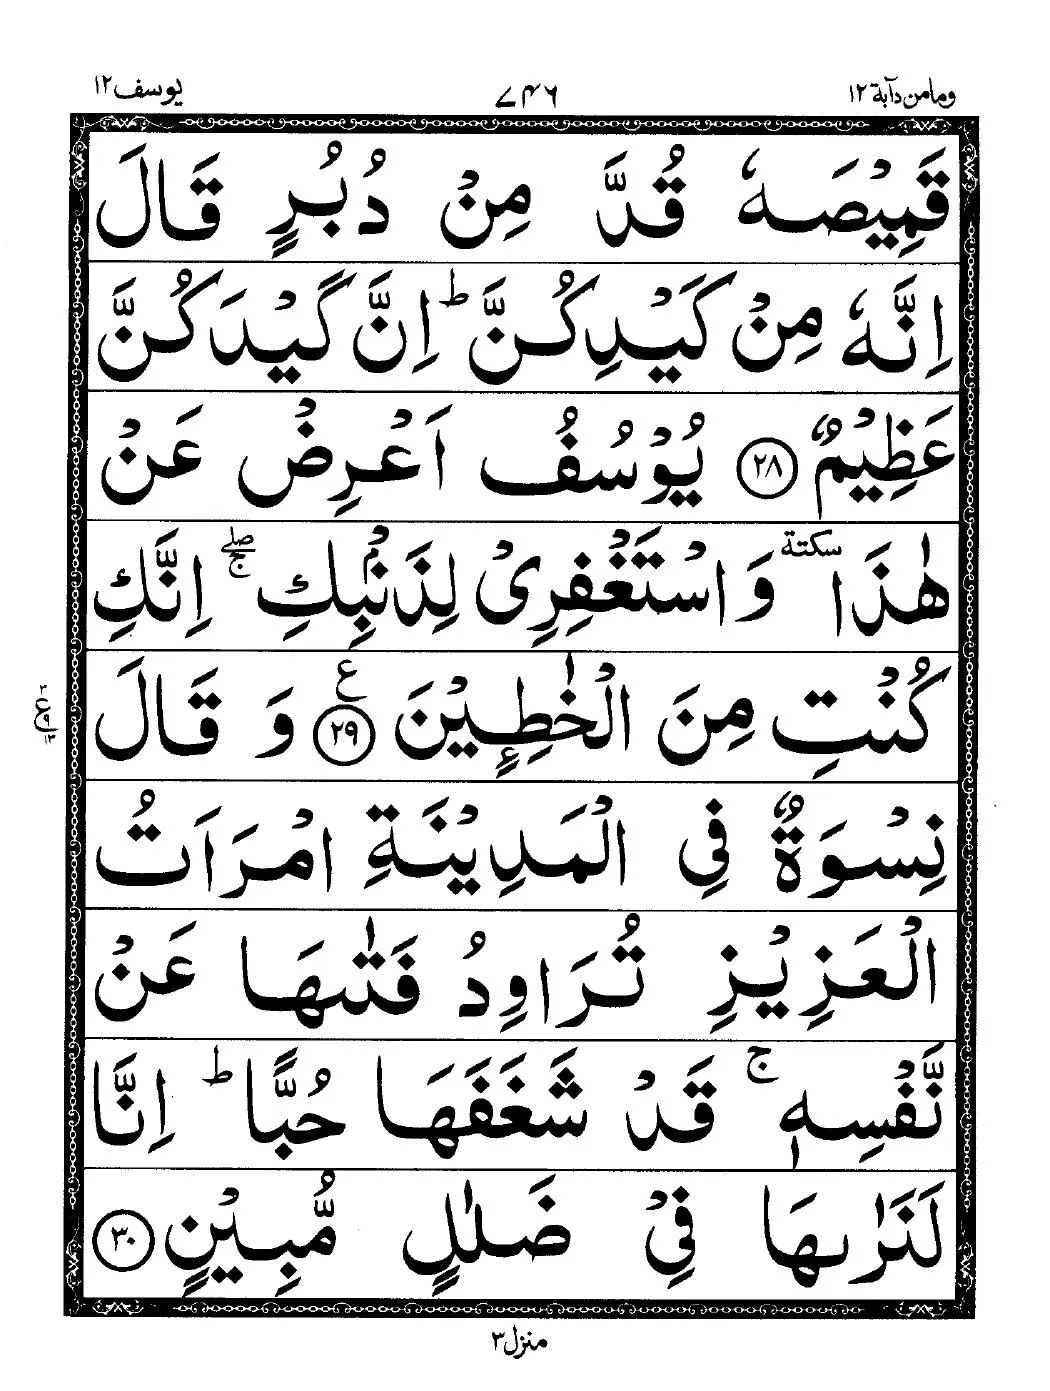 وما من دآبة ١٢ ٧٤٦ يوسف ١٢
قَمِيۡصَهٗ قُدَّ مِنۡ دُبُرٍ قَالَ
اِنَّهٗ مِنۡ كَيۡدِكُنَّ ؕ اِنَّ كَيۡدَكُنَّ
عَظِيۡمٌ ﴿۲۸﴾ يُوۡسُفُ اَعۡرِضۡ عَنۡ
هٰذَا سكتة وَاسۡتَغۡفِرِىۡ لِذَنۡۢبِكِ ۖۚ اِنَّكِ
كُنۡتِ مِنَ الۡخٰطِـِٕيۡنَ ﴿۲۹﴾ ع وَ قَالَ
نِسۡوَةٌ فِى الۡمَدِيۡنَةِ امۡرَاَتُ
الۡعَزِيۡزِ تُرَاوِدُ فَتٰٮهَا عَنۡ
نَّفۡسِهٖ ۚ قَدۡ شَغَفَهَا حُبًّا ؕ اِنَّا
لَـنَرٰٮهَا فِىۡ ضَلٰلٍ مُّبِيۡنٍ ﴿۳۰﴾
منزل ٣